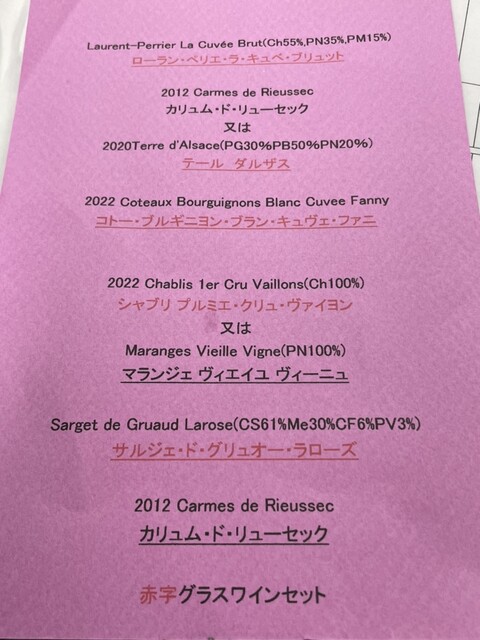 Laurent-Perrier La Cuvée Brut(Ch55%,PN35%,PM15%)
ローラン・ペリエ・ラ・キュベ・ブリュット
2012 Carmes de Rieussec
カリュム・ド・リューセック
又は
2020Terre d'Alsace(PG30%PB50%PN20%)
テール ダルザス
2022 Coteaux Bourguignons Blanc Cuvee Fanny
コトー・ブルギニヨン・ブラン・キュヴェ・ファニ
2022 Chablis 1er Cru Vaillons(Ch100%)
シャブリ プルミエ・クリュ・ヴァイヨン
又は
Maranges Vieille Vigne(PN100%)
マランジェ ヴィエイユ ヴィーニュ
Sarget de Gruaud Larose(CS61%Me30%CF6%PV3%)
サルジェ・ド・グリュオー・ラローズ
2012 Carmes de Rieussec
カリュム・ド・リューセック
赤字グラスワインセット